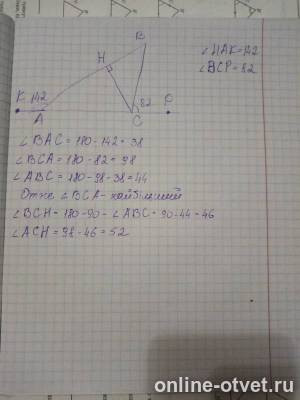 B
H
∠HAK=142
∠BCP=82
K 142
82 P
A
C
∠BAC = 180-142 = 38
∠BCA = 180-82 = 98
∠ABC = 180-98-38 = 44
Отже ∠BCA - найбільший
∠BCH = 180-90-∠ABC = 90-44 = 46
∠ACH = 98-46 = 52
online-otvet.ru